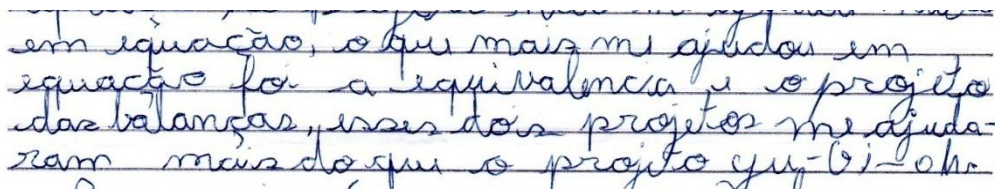 em equação, o que mais me ajudou em
equação foi a equivalencia e o projeto
das balanças, esses dois projetos me ajuda-
ram mais do que o projeto yu-Gi-oh.